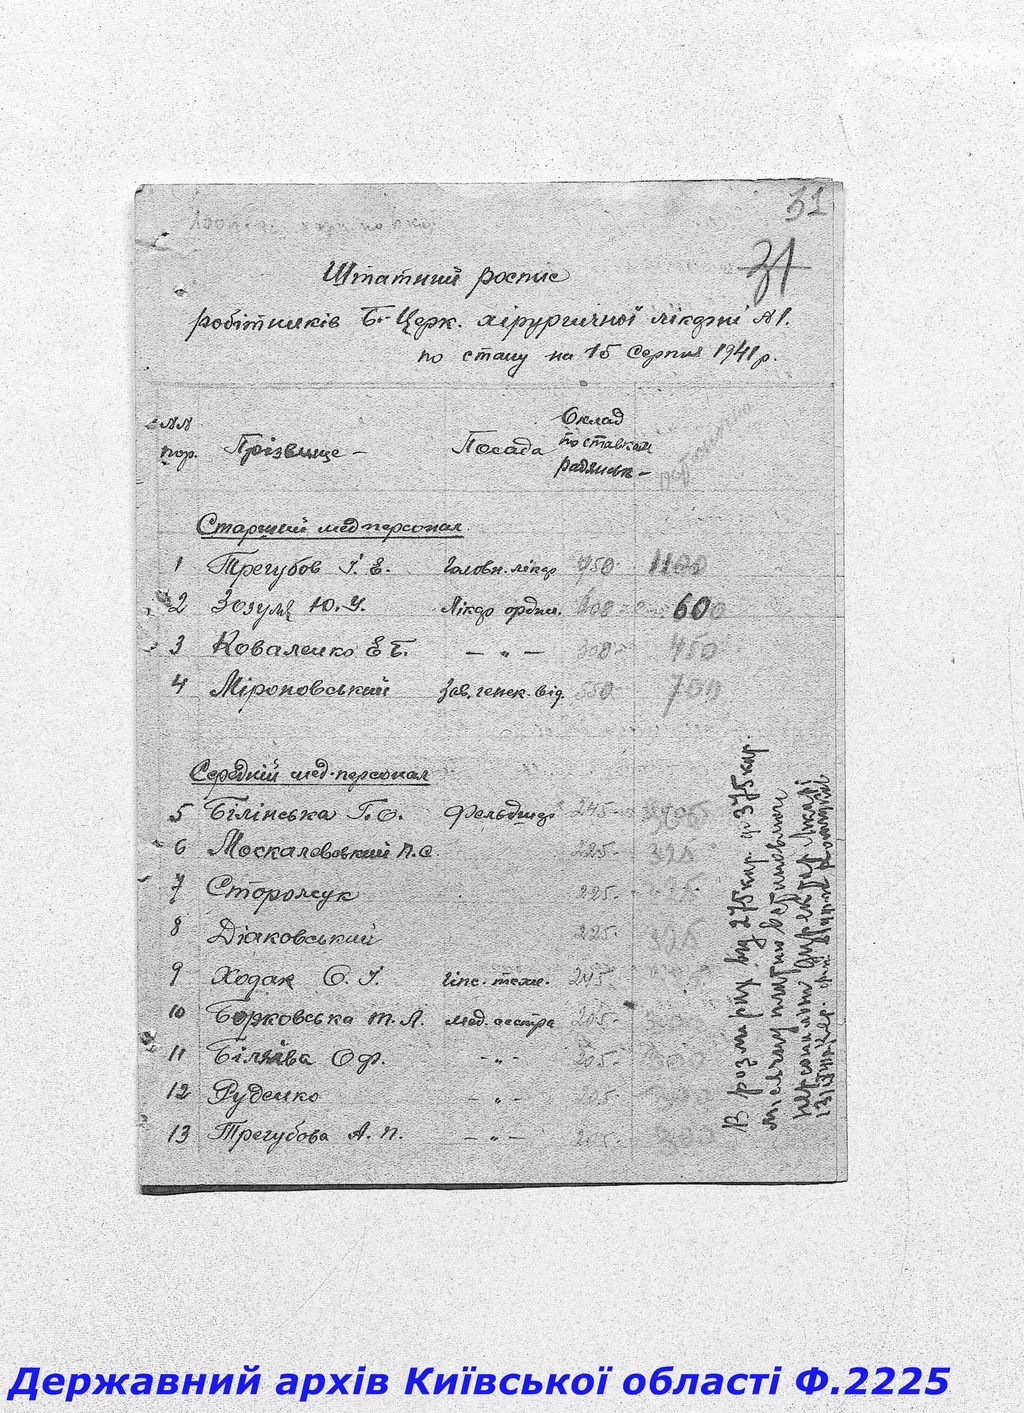 31
31
Штатний роспис
робітників Б-Церк. хірургичної лікарні №1.
по стану на 15 серпня 1941р.
№№ пор. Прізвище - Посада Оклад по ставкам радянськ -
Старший мед персонал
1 Трегубов І. Е. Головн. лікар 750- 1100
2 Зозуля Ю. У. Лікар ордин. 600
3 Коваленко Е Б. - „ - 300- 450
4 Міроновський Зав. генек. від. 550- 700
Середній мед-персонал
5 Білінська Г. О. Фельдшер 245-
6 Москалевський П. С 225- 325
7 Сторожук 225-
8 Діаковський 225- 325
9 Ходак О. І. гіпс. техн. 245-
10 Борковська Т. Л. мед. сестра 205- 300
11 Біл Оф. - „ - 205- 300
12 Руденко - „ - 205- 300
13 Трегубова А. П. - „ - 205- 300
В розмірах від 275 кар. до 375 кар.
місячну платню встановлен
персоналом директор лікарні
Державний архів Київської області Ф.2225